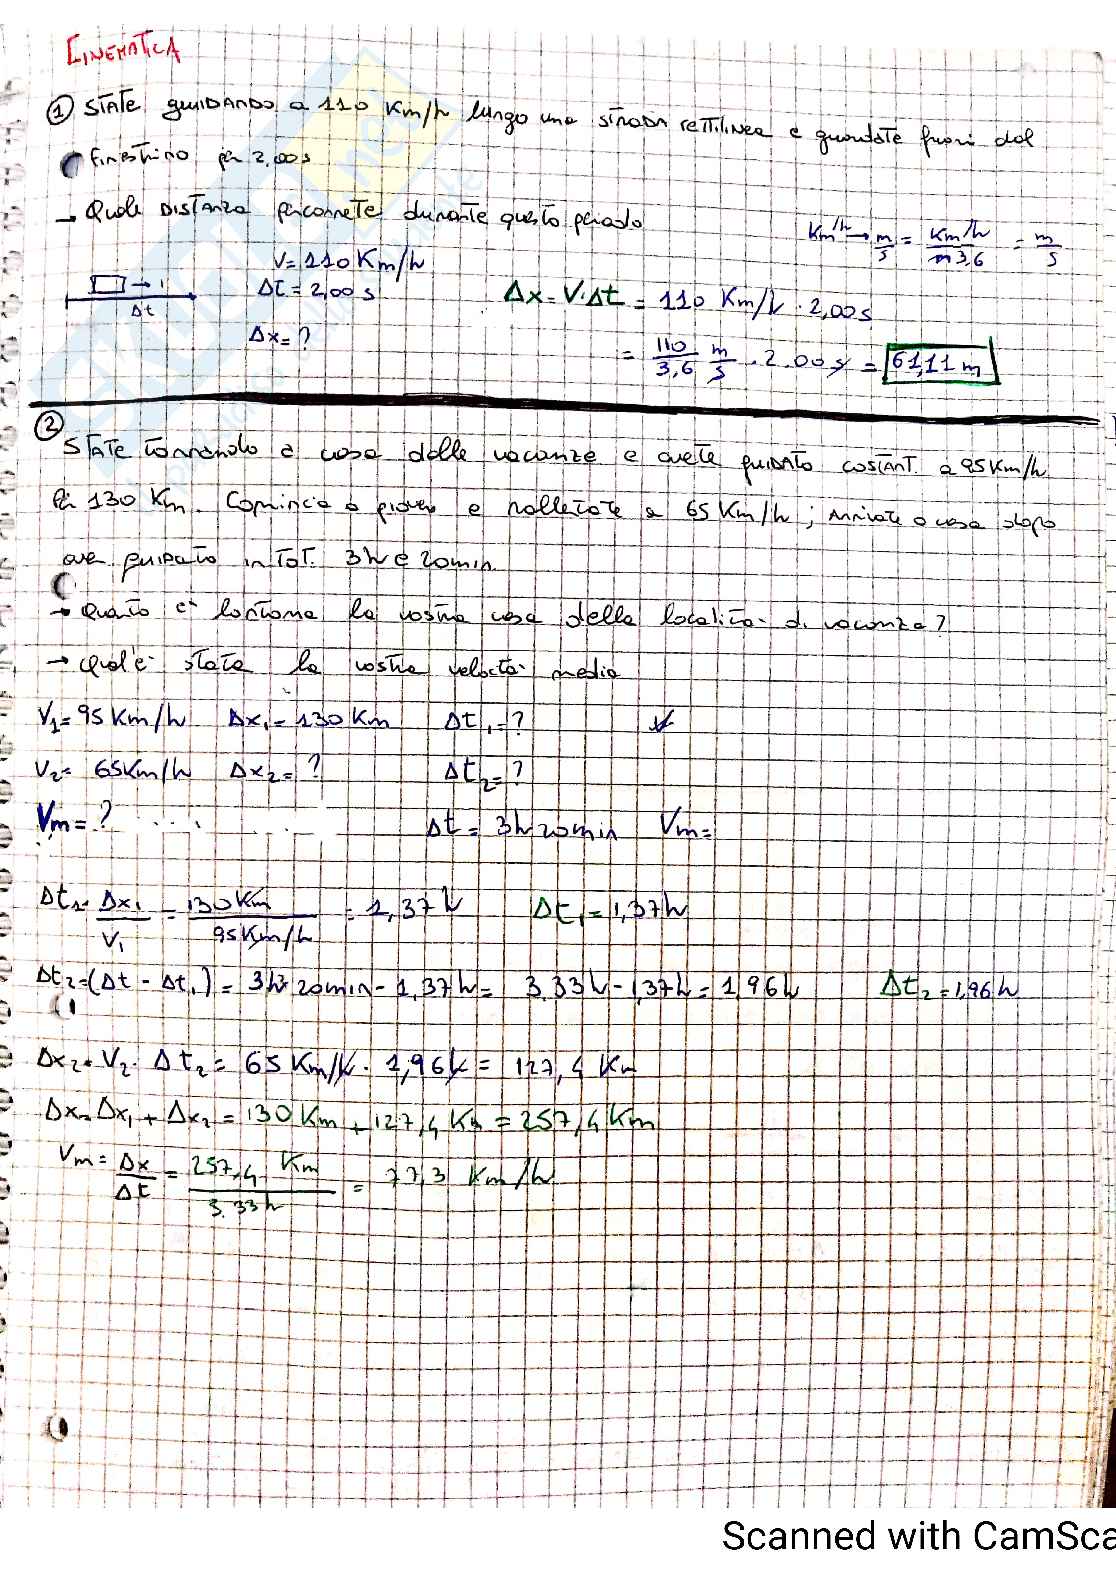 CINEMATICA
① STATE guIDANDO a 110 Km/h lungo una strada rettilinea e guardate fuori dal
finestrino per 2,00s
→ Quale DISTANZA percorrete durante questo periodo
Km/h → m/s = Km/h / 3,6 = m/s
V = 110 Km/h
Δt = 2,00 s
Δt
Δx = ?
Δx = V·Δt = 110 Km/h · 2,00s
= 110/3,6 m/s · 2.00 s = 61,11 m
②
STATE tornando a casa dalle vacanze e avete guidato costant. a 95 Km/h
per 130 Km. Comincia a piovere e rallentate a 65 Km/h; arrivate a casa dopo
aver guidato in TOT. 3h e 20min.
→ Quanto è lontana la vostra casa dalla località di vacanza?
→ Qual è stata la vostra velocità media
V₁ = 95 Km/h Δx₁ = 130 Km Δt₁ = ?
V₂ = 65 Km/h Δx₂ = ? Δt₂ = ?
Vm = ? Δt = 3h 20min Vm =
Δt₁ = Δx₁/V₁ = 130 Km / 95 Km/h = 1,37 h Δt₁ = 1,37 h
Δt₂ = (Δt - Δt₁) = 3h 20min - 1,37h = 3.33h - 1,37h = 1,96h Δt₂ = 1,96 h
Δx₂ = V₂ · Δt₂ = 65 Km/h · 1,96 h = 127,4 Km
Δx = Δx₁ + Δx₂ = 130 Km + 127,4 Km = 257,4 Km
Vm = Δx/Δt = 257,4 Km / 3.33h = 77,3 Km/h
Scanned with CamSca